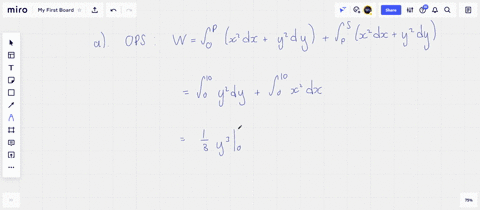 miro My First Board Share
a) OPS : W = ∫₀ᴾ (x²dx + y²dy) + ∫ₚˢ (x²dx + y²dy)
= ∫₀¹⁰ y²dy + ∫₀¹⁰ x² dx
= 1/3 y³|₀
79%